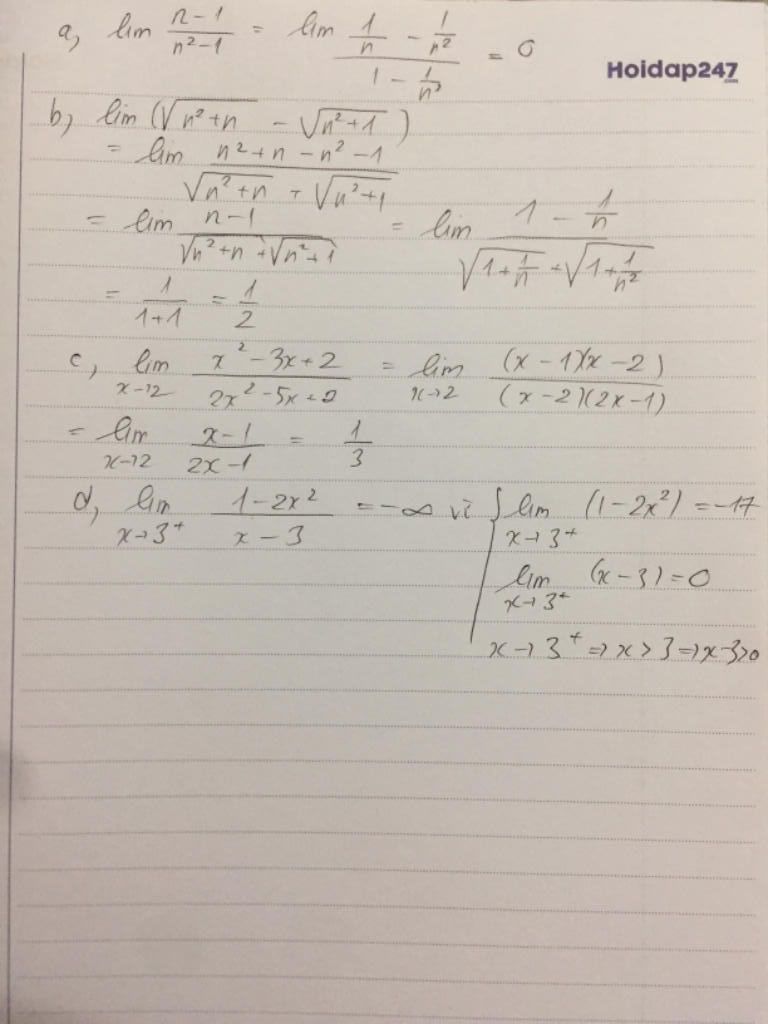 a, lim (n-1)/(n²-1) = lim (1/n - 1/n²)/(1 - 1/n²) = 0
Hoidap247
b, lim (√(n²+n) - √(n²+1))
= lim (n²+n-n²-1)/(√(n²+n) + √(n²+1))
= lim (n-1)/(√(n²+n) + √(n²+1)) = lim (1 - 1/n)/(√(1+1/n) + √(1+1/n²))
= 1/(1+1) = 1/2
c, lim x→2 (x²-3x+2)/(2x²-5x+2) = lim x→2 (x-1)(x-2)/(x-2)(2x-1)
= lim x→2 (x-1)/(2x-1) = 1/3
d, lim x→3⁺ (1-2x²)/(x-3) = -∞ vì { lim x→3⁺ (1-2x²) = -17
lim x→3⁺ (x-3) = 0
x→3⁺ ⇒ x>3 ⇒ x-3>0